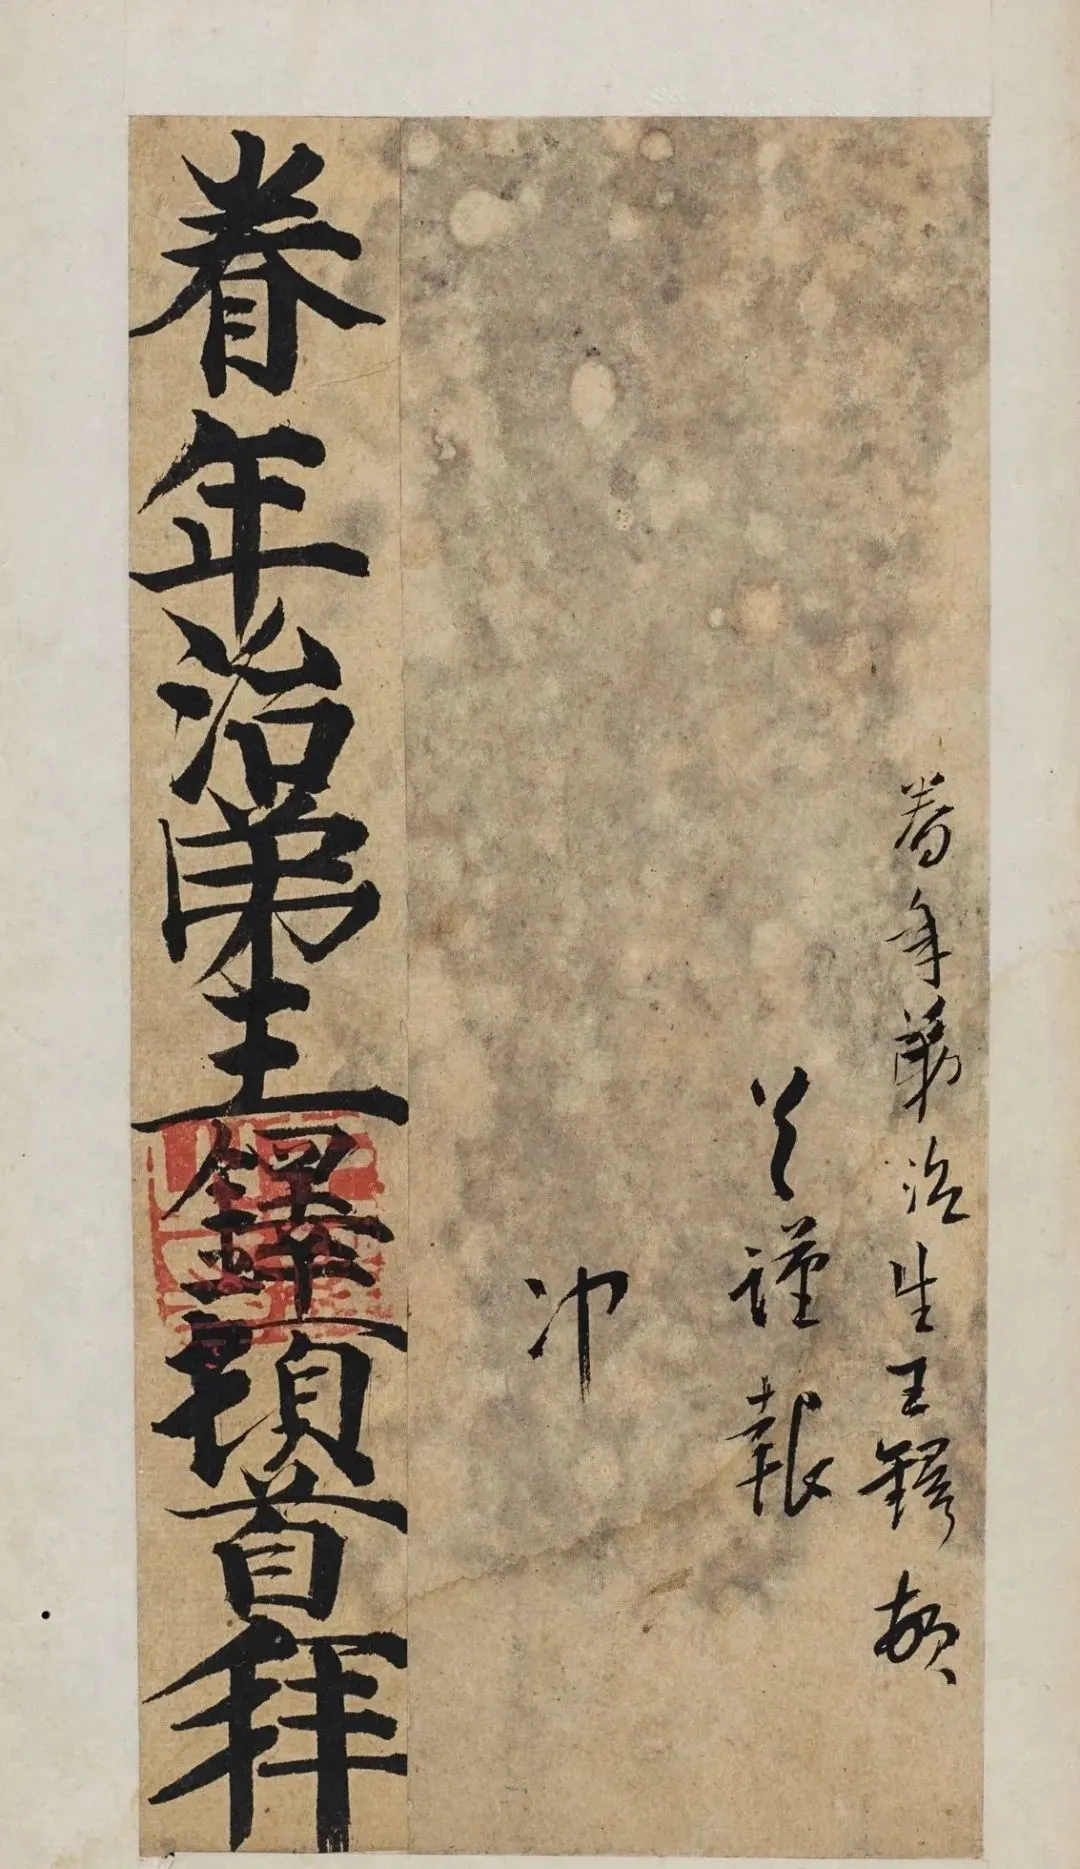 眷年弟治生王鐸頓
首謹報
冲
眷年治弟王鐸頓首拜